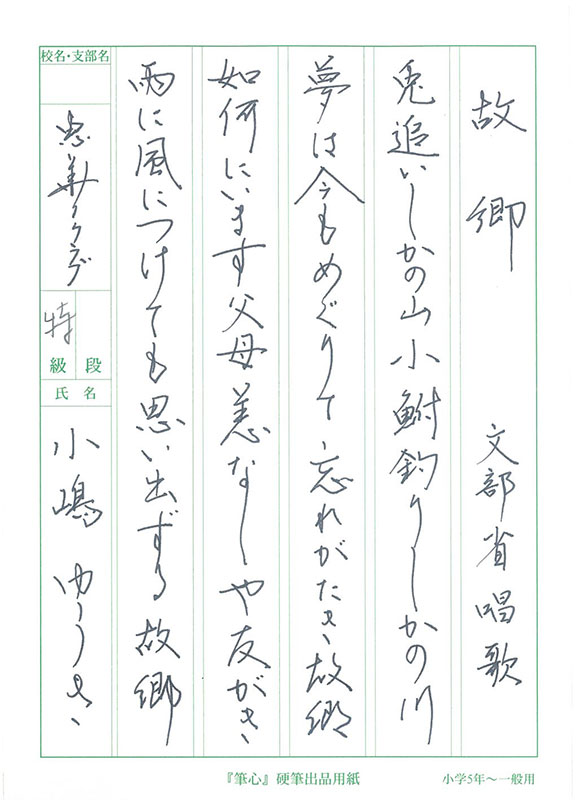 故郷 文部省唱歌
兎追いしかの山小鮒釣りしかの川
夢は今もめぐりて、忘れがたき故郷
如何にいます父母恙なしや友がき
雨に風につけても思い出ずる故郷
校名・支部名
クラブ
特
級 段
氏名
小嶋 ゆうき
『筆心』硬筆出品用紙
小学5年〜一般用